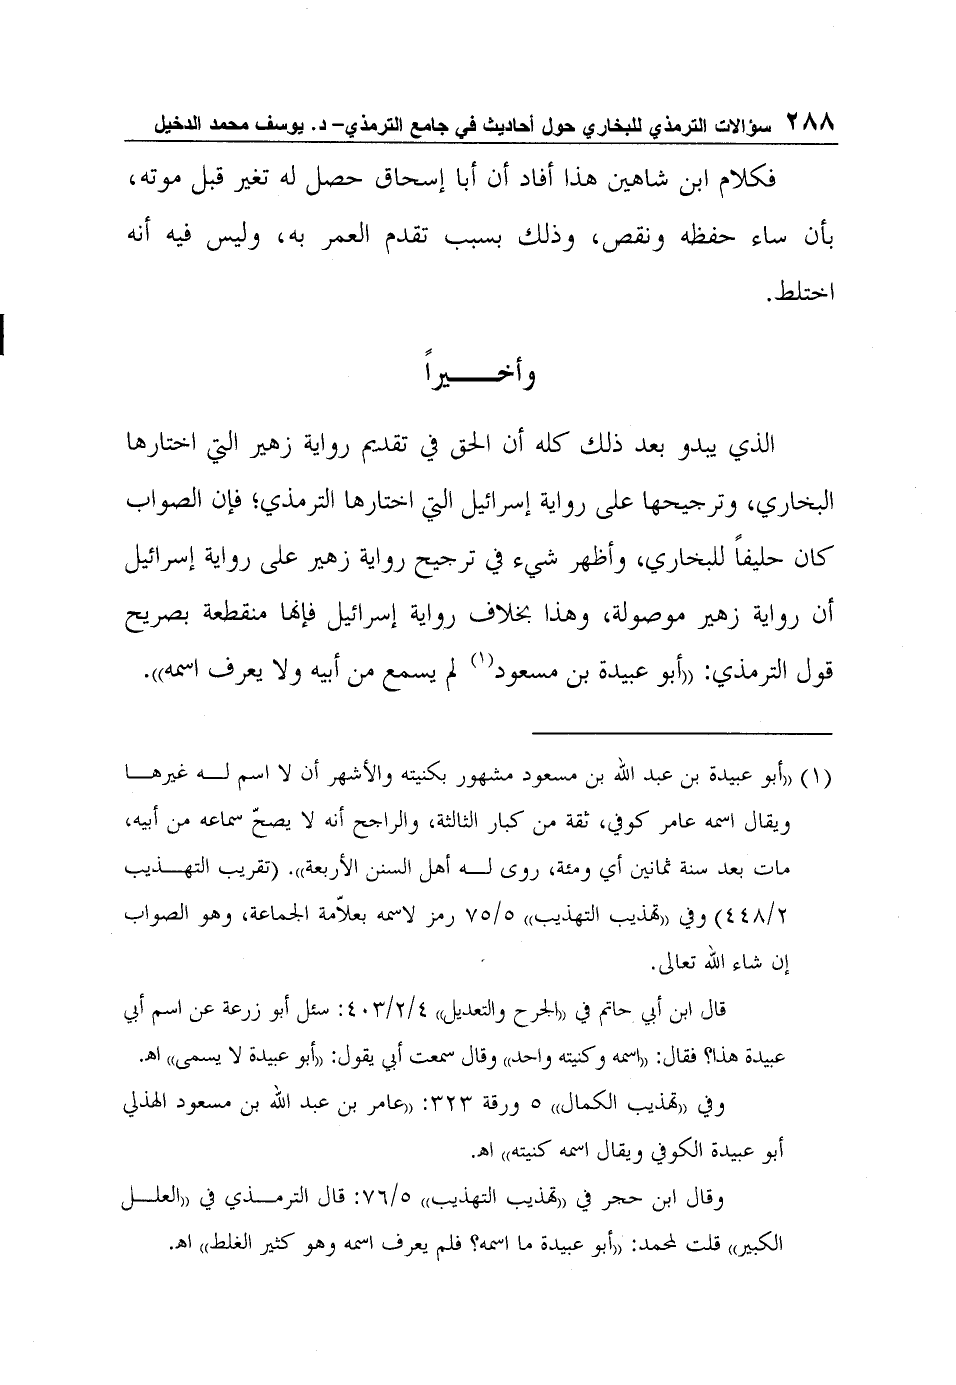 ٢٨٨ سؤالات الترمذي للبخاري حول أحاديث في جامع الترمذي- د. يوسف محمد الدخيل
فكلام ابن شاهين هذا أفاد أن أبا إسحاق حصل له تغير قبل موته،
بأن ساء حفظه ونقص، وذلك بسبب تقدم العمر به، وليس فيه أنه
اختلط.
وأخـــــيراً
الذي يبدو بعد ذلك كله أن الحق في تقديم رواية زهير التي اختارها
البخاري، وترجيحها على رواية إسرائيل التي اختارها الترمذي؛ فإن الصواب
كان حليفاً للبخاري، وأظهر شيء في ترجيح رواية زهير على رواية إسرائيل
أن رواية زهير موصولة، وهذا بخلاف رواية إسرائيل فإنها منقطعة بصريح
قول الترمذي: «أبو عبيدة بن مسعود(١) لم يسمع من أبيه ولا يعرف اسمه».
(١) «أبو عبيدة بن عبد الله بن مسعود مشهور بكنيته والأشهر أن لا اسم لــه غيرهــا
ويقال اسمه عامر كوفي، ثقة من كبار الثالثة، والراجح أنه لا يصحّ سماعه من أبيه،
مات بعد سنة ثمانين أي ومئة، روى لــه أهل السنن الأربعة». (تقريب التهــذيب
٤٤٨/٢) وفي «تهذيب التهذيب» ٧٥/٥ رمز لاسمه بعلاّمة الجماعة، وهو الصواب
إن شاء الله تعالى.
قال ابن أبي حاتم في «الجرح والتعديل» ٤٠٣/٢/٤: سئل أبو زرعة عن اسم أبي
عبيدة هذا؟ فقال: «اسمه وكنيته واحد» وقال سمعت أبي يقول: «أبو عبيدة لا يسمى» اهـ.
وفي «تهذيب الكمال» ٥ ورقة ٣٢٣: «عامر بن عبد الله بن مسعود الهذلي
أبو عبيدة الكوفي ويقال اسمه كنيته» اهـ.
وقال ابن حجر في «تهذيب التهذيب» ٧٦/٥: قال الترمــذي في «العلــل
الكبير» قلت لمحمد: «أبو عبيدة ما اسمه؟ فلم يعرف اسمه وهو كثير الغلط» اهـ.